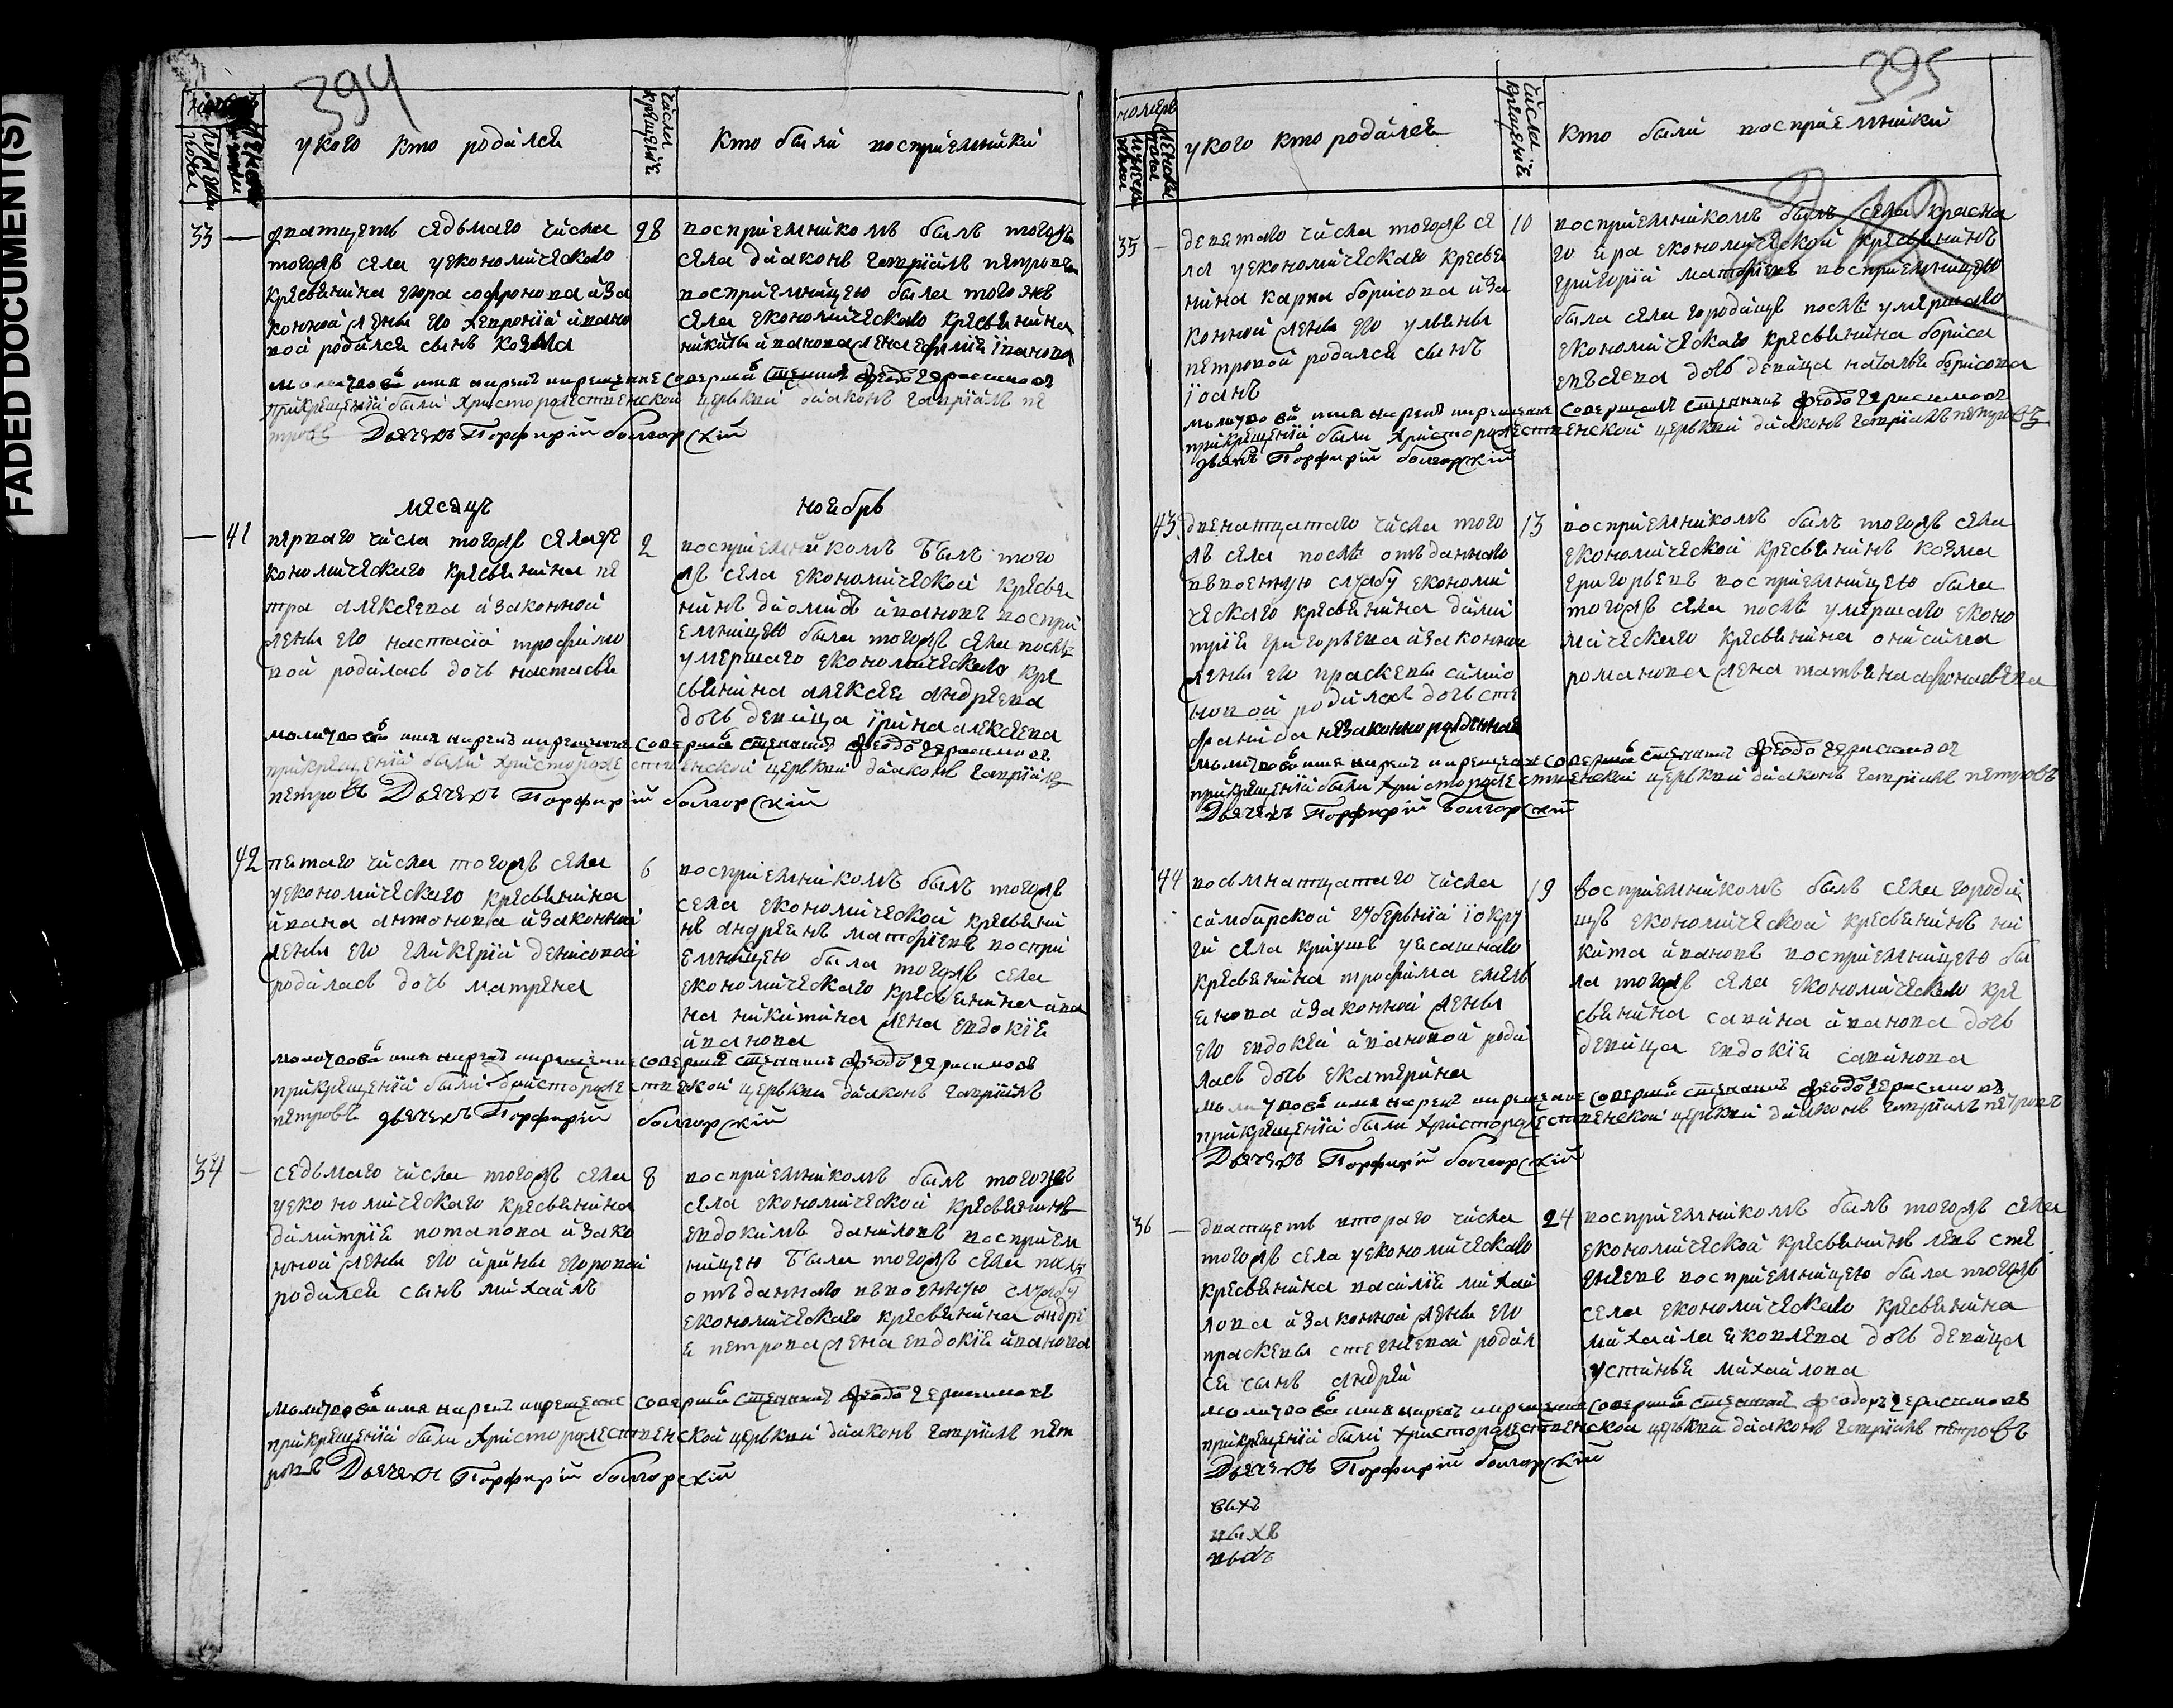 FADED DOCUMENT(S)
394
номеръ
мужеска пола
числа крещенiе
у кого кто родился
Кто были воспрiемники
33 — дватцеть седьмаго числа 28
тогожъ села у економическаго
кресьянина егора софронова иза
конной жены его хевронiи ивано
вой родился сынъ козма
воспрiемникомъ былъ тогожъ
села дiаконъ гаврiилъ петровъ
воспрiемницею была того же
села економическаго кресьянина
никиты иванова жена ефимiя iванова
молитвовалъ имя нарекъ икрещение совершилъ священникъ феодоръ герасимовъ
прикрещенiи были христорожественской церькви дiаконъ гаврiилъ пе
тровъ Дьячекъ Порфирiй болгорскiй
месяцъ ноябрь
— 41 перваго числа тогожъ села уе 2
кономическаго кресьянина пе
тра алексеева изаконной
жены его настасiи трофимо
вой родилась дочь настасья
воспрiемникомъ былъ того
жъ села економической кресья
нинъ диомидъ ивановъ воспрi
емницею была тогожъ села послѣ
умершаго економическаго кре
сьянина алексея андреева
дочь девица iрина алексеева
молитвовалъ имя нарекъ икрещение совершилъ священникъ феодоръ герасимовъ
прикрещенiи были христорожественской церькви дiаконъ гаврiилъ
петровъ Дьячекъ Порфирiй болгорскiй
42 пятаго числа тогожъ села 6
уекономическаго кресьянина
ивана антонова изаконной
жены его гликерiи денисовой
родилась дочь матрена
воспрiемникомъ былъ тогожъ
села економической кресьяни
нъ андреянъ матфiевъ воспрi
емницею была тогожъ села
економическаго кресьянина ива
на никитина жена евдокiя
иванова
молитвовалъ имя нарекъ икрещение совершилъ священникъ феодоръ герасимовъ
прикрещенiи были христорожественской церькви дiаконъ гаврiилъ
петровъ дьячекъ Порфирiй болгорскiй
34 — седьмаго числа тогожъ села 8
уекономическаго кресьянина
димитрiя потапова изако
нной жены его ирины егоровой
родился сынъ михаилъ
воспрiемникомъ былъ тогожъ
села економической кресьянинъ
евдокимъ даниловъ воспрiем
ницею была тогожъ села послѣ
отъданнаго въвоенную службу
економическаго кресьянина андре
я петрова жена евдокiя иванова
молитвовалъ имя нарекъ икрещение совершилъ священникъ феодоръ герасимовъ
прикрещенiи были христорожественской церькви дiаконъ гаврiилъ пет
ровъ Дьячекъ Порфирiй болгорскiй
395
номеръ
мужеска пола
женска пола
числа крещенiе
у кого кто родился
Кто были воспрiемники
35 — девятаго числа тогожъ се 10
ла уекономическаго кресья
нина карпа борисова иза
конной жены его ульяны
петровой родился сынъ
iоанъ
воспрiемникомъ былъ села красна
го яра економической кресьянинъ
григорiй матфiевъ воспрiемницею
была села городищъ послѣ умершаго
економическаго кресьянина бориса
евъсеева дочь девица наталья борисова
молитвовалъ имя нарекъ икрещение совершилъ священникъ феодоръ герасимовъ
прикрещенiи были христорожественской церькви дiаконъ гаврiилъ петровъ
дьячекъ Порфирiй болгорскiй
43 двенатцатаго числа того 13
жъ села послѣ отъданнаго
въвоенную службу економи
ческаго кресьянина дими
трiя григорьева изаконной
жены его прасковьи симио
новой родилась дочь сте
фанида незаконно рожденная
воспрiемникомъ былъ тогожъ села
економической кресьянинъ козма
григорьевъ воспрiемницею была
тогожъ села послѣ умершаго еконо
мическаго кресьянина онисима
романова жена татьяна афонасьева
молитвовалъ имя нарекъ икрещение совершилъ священникъ феодоръ герасимовъ
прикрещенiи были христорожественской церькви дiаконъ гаврiилъ петровъ
Дьячекъ Порфирiй болгорскiй
44 восьмнатцатаго числа 19
симбирской губернiи iокру
ги села криушъ уясашнаго
кресьянина трофима емель
янова изаконной жены
его евдокеи ивановой роди
лась дочь екатерина
воспрiемникомъ былъ села городи
щъ економической кресьянинъ ни
кита ивановъ воспрiемницею бы
ла тогожъ села економическаго кре
сьянина савина иванова дочь
девица евдокiя савинова
молитвовалъ имя нарекъ икрещение совершилъ священникъ феодоръ герасимовъ
прикрещенiи были христорожественской церькви дiаконъ гаврiилъ петровъ
Дьячекъ Порфирiй болгорскiй
36 — дватцеть втораго числа 24
тогожъ села уекономическаго
кресьянина василiя михаи
лова изаконной жены его
прасковьи стегнеевой родил
ся сынъ андрей
воспрiемникомъ былъ тогожъ села
економической кресьянинъ левъ сте
гнеевъ воспрiемницею была тогожъ
села економическаго кресьянина
михаила яковлева дочь девица
устинья михайлова
молитвовалъ имя нарекъ икрещение совершилъ священникъ феодоръ герасимовъ
прикрещенiи были христорожественской церькви дiаконъ гаврiилъ петровъ
Дьячекъ Порфирiй болгорскiй